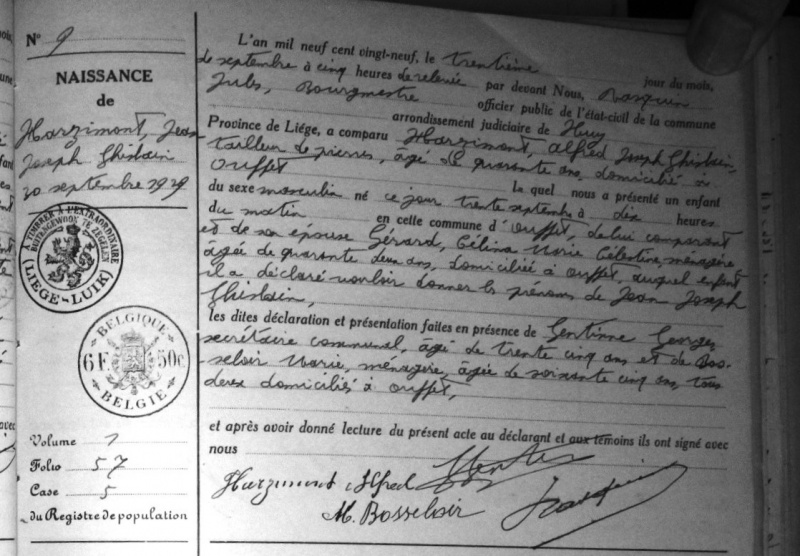 N° 9
NAISSANCE
de
Harzimont, Jean
Joseph Ghislain
30 septembre 1929
A TIMBRER A L'EXTRAORDINAIRE
BUITENGEWOON TE ZEGELEN
(LIEGE-LUIK)
BELGIQUE
6 F. 50 c.
BELGIE
Volume 1
Folio 57
Case 5
du Registre de population
L'an mil neuf cent vingt-neuf, le trentième jour du mois,
de septembre à cinq heures de relevée par devant Nous, Rasquin
Jules, Bourgmestre officier public de l'état-civil de la commune
arrondissement judiciaire de Huy
Province de Liége, a comparu Harzimont, Alfred Joseph Ghislain,
tailleur de pierres, âgé de quarante ans, domicilié à
Ouffet la quel nous a présenté un enfant
du sexe masculin né ce jour trente septembre à dix heures
du matin en cette commune d'Ouffet, de lui comparant
et de son épouse Gérard, Célina Marie Célestine ménagère
âgée de quarante deux ans, domiciliée à Ouffet, auquel enfant
il a déclaré vouloir donner les prénoms de Jean Joseph
Ghislain,
les dites déclaration et présentation faites en présence de Gentinne Georges
secrétaire communal, âgé de trente cinq ans et de Bos-
seloir Marie, ménagère, âgée de soixante cinq ans, tous
deux domiciliés à Ouffet,
et après avoir donné lecture du présent acte au déclarant et aux témoins ils ont signé avec
nous
Harzimont Alfred
M. Bosseloir